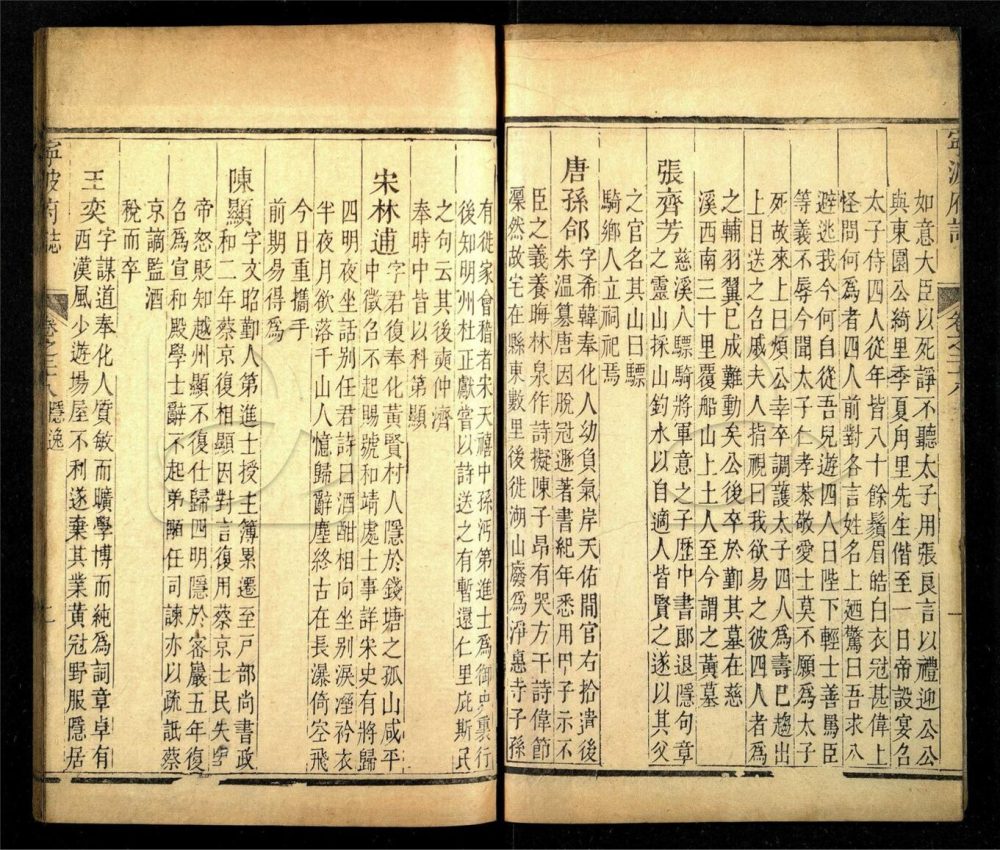 寧波府志
卷之三十八
一
如意大臣以死諍不聽太子用張良言以禮迎公公
與東園公綺里季夏甪里先生偕至一日帝設宴召
太子侍四人從年皆八十餘鬚眉皓白衣冠甚偉上
怪問何為者四人前對各言姓名上廼驚曰吾求公
避逃我今何自從吾兒遊四人曰陛下輕士善罵臣
等義不辱今聞太子仁孝恭敬愛士莫不願為太子
死故來上曰煩公幸卒調護太子四人為壽已趨出
上目送之召戚夫人指視曰我欲易之彼四人者為
之輔羽翼已成難動矣公後卒於鄞其墓在慈
溪西南三十里覆船山上土人至今謂之黃墓
張齊芳 慈溪人驃騎將軍意之子歷中書郎退隱句章
之靈山採山釣水以自適人皆賢之遂以其父
之官名其山曰驃
騎鄉人立祠祀焉
唐孫郃 字希韓奉化人幼負氣岸天佑間官右拾遺後
朱溫篡唐因脫冠遯著書紀年悉用甲子示不
臣之義養晦林泉作詩擬陳子昂有哭方干詩偉節
凜然故宅在縣東數里後徙湖山廢為淨惠寺子孫
有徙家會稽者宋天禧中孫沔第進士為御史裏行
後知明州杜正獻嘗以詩送之有暫還仁里庇斯民
之句云其後奭仲濟
奉時中皆以科第顯
宋林逋 字君復奉化黃賢村人隱於錢塘之孤山咸平
中徵召不起賜號和靖處士事詳宋史有將歸
四明夜坐話別任君詩曰酒酣相向坐別淚溼衿衣
半夜月欲落千山人憶歸辭塵終古在長瀑倚空飛
今日重攜手
前期易得為
陳顯 字文昭鄞人第進士授主簿累遷至戶部尚書政
和二年蔡京復相顯因對言復用蔡京士民失望
帝怒貶知越州顯不復仕歸四明隱於密巖五年復
召為宣和殿學士辭不起弟顒任司諫亦以疏詆蔡
京謫監酒
稅而卒
王奕 字謀道奉化人質敏而曠學博而純為詞章卓有
西漢風少遊場屋不利遂棄其業黃冠野服隱居
寧波府志
卷之三十八 隱逸
二